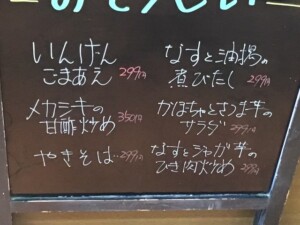 おそうざい
いんげん
ごまあえ 299円
メカジキの
甘酢炒め 350円
やきそば…299円
なすと油揚の
煮びたし 299円
かぼちゃとさつま芋の
サラダ 299円
なすとジャガ芋の
ひき肉炒め 299円